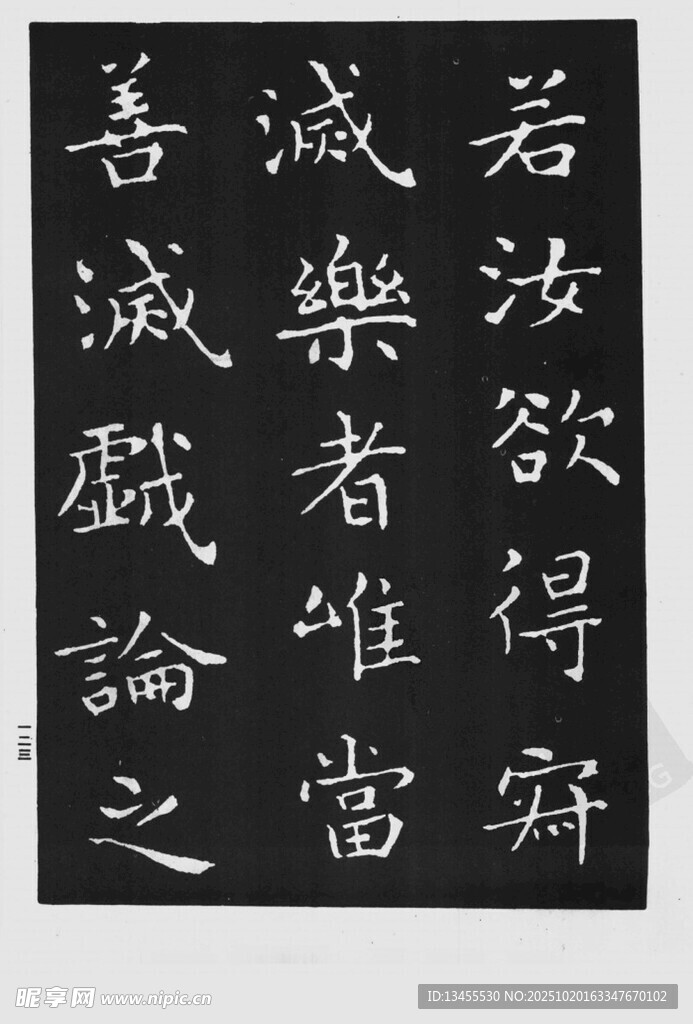 若汝欲得寂
滅樂者唯當
善滅戲論之
一二三
昵享网 www.nipic.cn
ID:13455530 NO:20251020163347670102